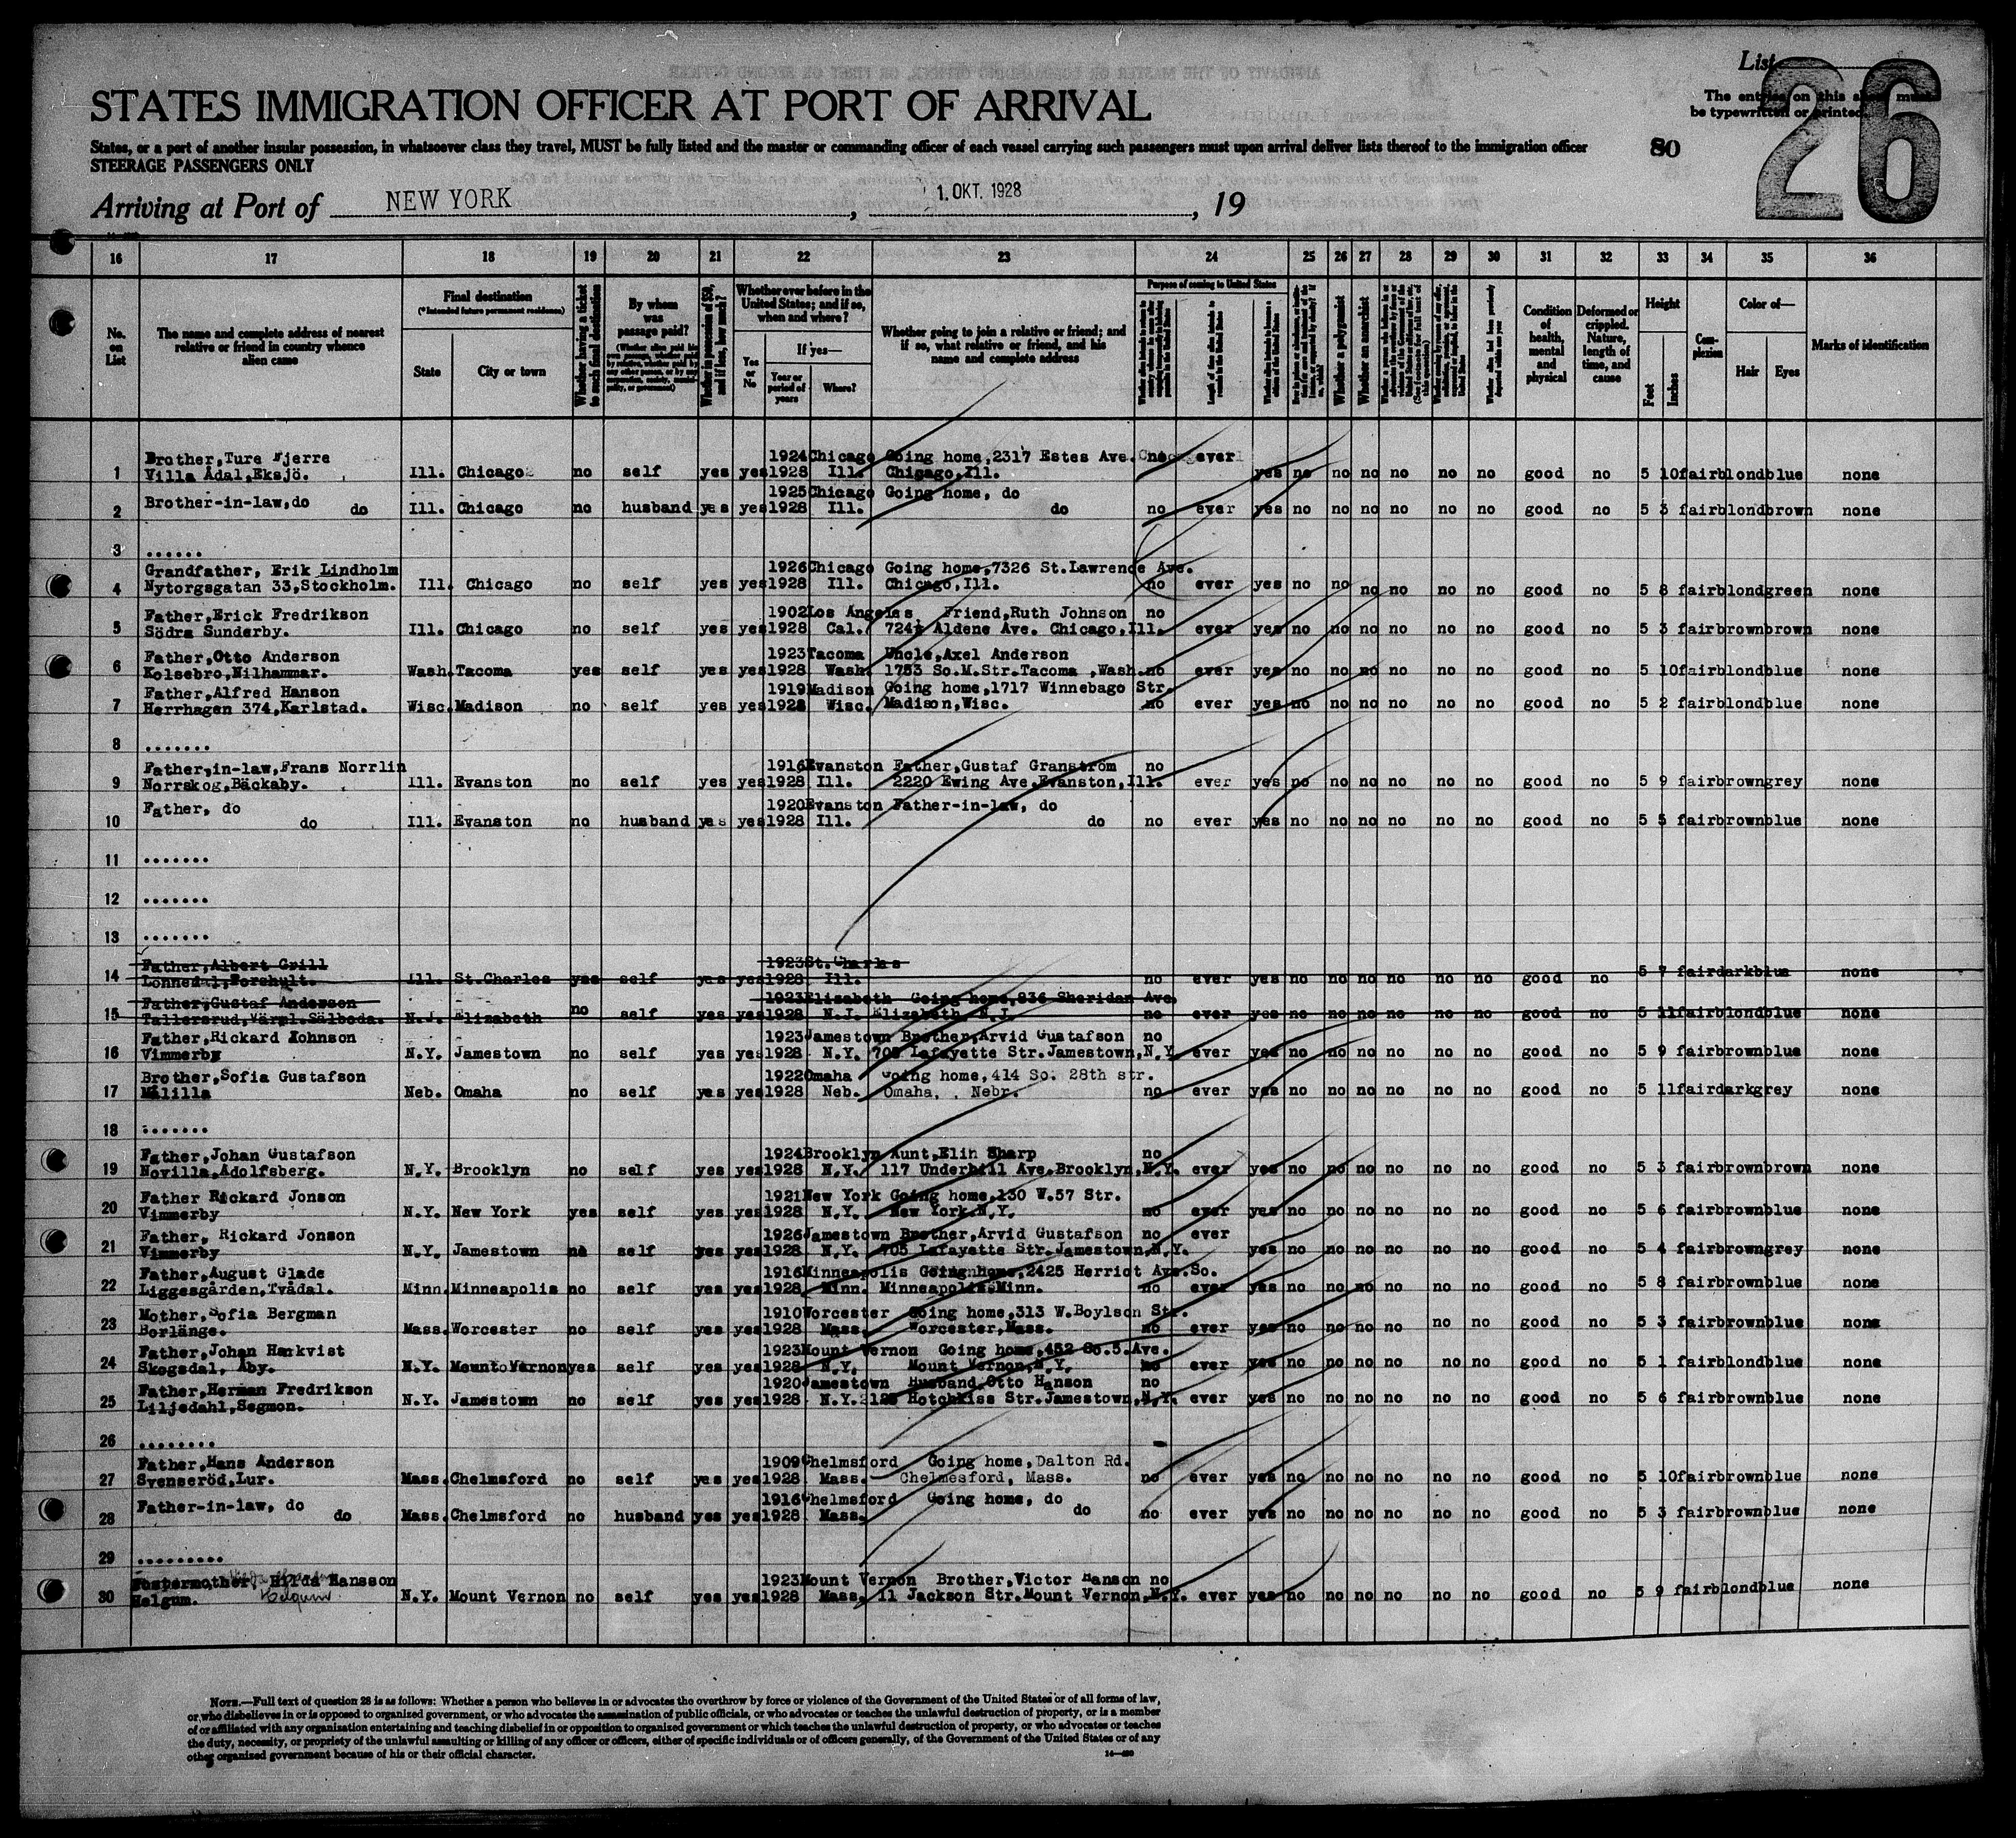 List
The entries on this sheet must
be typewritten or printed.
26
80
STATES IMMIGRATION OFFICER AT PORT OF ARRIVAL
States, or a port of another insular possession, in whatsoever class they travel, MUST be fully listed and the master or commanding officer of each vessel carrying such passengers must upon arrival deliver lists thereof to the immigration officer
STEERAGE PASSENGERS ONLY
Arriving at Port of NEW YORK, 1. OKT. 1928, 19
16 17 18 19 20 21 22 23 24 25 26 27 28 29 30 31 32 33 34 35 36
No. on List
The name and complete address of nearest relative or friend in country whence alien came
Final destination
(*Intended future permanent residence)
State
City or town
Whether having a ticket to such final destination
By whom was passage paid?
Whether in possession of $50, and if less, how much?
Whether ever before in the United States; and if so, when and where?
Yes or No
If yes—
Year or period of years
Where?
Whether going to join a relative or friend; and if so, what relative or friend, and his name and complete address
Purpose of coming to United States
Whether a polygamist
Whether an anarchist
Condition of health, mental and physical
Deformed or crippled. Nature, length of time, and cause
Height
Feet
Inches
Complexion
Color of—
Hair
Eyes
Marks of identification
Brother,Ture Fjerre 1924 Chicago Going home,2317 Estes Ave. no ever
1 Villa Ådal,Eksjö. Ill. Chicago no self yes yes 1928 Ill. Chicago,Ill. yes no no no no no no good no 5 10 fair blond blue none
1925 Chicago Going home, do
2 Brother-in-law,do do Ill. Chicago no husband yes yes 1928 Ill. do no ever yes no no no no no no good no 5 3 fair blond brown none
3 ......
Grandfather, Erik Lindholm 1926 Chicago Going home,7326 St.Lawrence Ave.
4 Nytorgsgatan 33,Stockholm. Ill. Chicago no self yes yes 1928 Ill. Chicago,Ill. no ever yes no no no no no no good no 5 8 fair blond green none
Father,Erick Fredrikson 1902 Los Angeles Friend,Ruth Johnson no
5 Södra Sunderby. Ill. Chicago no self yes yes 1928 Cal. Aldene Ave. Chicago,Ill. ever yes no no no no no no good no 5 3 fair brown brown none
Father,Otto Anderson 1923 Tacoma Uncle,Axel Anderson
6 Kolsebro,Hilhammar. Wash. Tacoma yes self yes yes 1928 Wash. 1753 So.M.Str.Tacoma ,Wash. no ever yes no no no no no no good no 5 10 fair blond blue none
Father,Alfred Hanson 1919 Madison Going home,1717 Winnebago Str.
7 Herrhagen 374,Karlstad. Wisc. Madison no self yes yes 1928 Wisc. Madison,Wisc. no ever yes no no no no no no good no 5 2 fair blond blue none
8 .......
Father,in-law,Frans Norrlin 1916 Evanston Father,Gustaf Granström no
9 Norrskog,Bäckaby. Ill. Evanston no self yes yes 1928 Ill. 2220 Ewing Ave.Evanston,Ill. ever yes no no no no no no good no 5 9 fair brown grey none
Father, do 1920 Evanston Father-in-law, do
10 do Ill. Evanston no husband yes yes 1928 Ill. do no ever yes no no no no no no good no 5 5 fair brown blue none
11 .......
12 .......
13 .......
Father,Albert Grill 1923 St.Charles
14 Lönnedal, Ill. St.Charles yes self yes yes 1928 Ill. no ever yes no no no no no no good no 5 7 fair dark blue none
Father,Gustaf Anderson 1923 Elizabeth Going home,836 Sheridan Ave.
15 Tallersrud,Värml.Sälboda. N.J. Elizabeth no self yes yes 1928 N.J. Elizabeth, N.J. no ever yes no no no no no no good no 5 11 fair blond blue none
Father,Rickard Johnson 1923 Jamestown Brother,Arvid Gustafson no
16 Vimmerby N.Y. Jamestown no self yes yes 1928 N.Y. 705 Lafayette Str.Jamestown,N.Y. ever yes no no no no no no good no 5 9 fair brown blue none
Brother,Sofia Gustafson 1922 Omaha Going home,414 So. 28th str.
17 Målilla Neb. Omaha no self yes yes 1928 Neb. Omaha, Nebr. no ever yes no no no no no no good no 5 11 fair dark grey none
18 .......
Father,Johan Gustafson 1924 Brooklyn Aunt,Elin Sharp no
19 Novilla,Adolfsberg. N.Y. Brooklyn no self yes yes 1928 N.Y. 117 Underhill Ave.Brooklyn,N.Y. ever yes no no no no no no good no 5 3 fair brown brown none
Father Rickard Jonson 1921 New York Going home,130 W.57 Str.
20 Vimmerby N.Y. New York yes self yes yes 1928 N.Y. New York,N.Y. no ever yes no no no no no no good no 5 6 fair brown blue none
Father, Rickard Jonson 1926 Jamestown Brother,Arvid Gustafson no ever
21 Vimmerby N.Y. Jamestown no self yes yes 1928 N.Y. 705 Lafayette Str.Jamestown,N.Y. yes no no no no no no good no 5 4 fair brown grey none
Father,August Glade 1916 Minneapolis Going home,2425 Herriot Ave.So.
22 Liggesgården,Tvådal. Minn. Minneapolis no self yes yes 1928 Minn. Minneapolis Minn. no ever yes no no no no no no good no 5 8 fair brown blue none
Mother,Sofia Bergman 1910 Worcester Going home,313 W.Boylson Str.
23 Borlänge. Mass. Worcester no self yes yes 1928 Mass. Worcester,Mass. no ever yes no no no no no no good no 5 3 fair brown blue none
Father,Johan Harkvist 1923 Mount Vernon Going home,452 So.5.Ave.
24 Skogsdal, Åby. N.Y. Mount Vernon yes self yes yes 1928 N.Y. Mount Vernon,N.Y. no ever yes no no no no no no good no 5 1 fair blond blue none
Father,Herman Fredrikson 1920 Jamestown Husband,Otto Hanson no
25 Liljedahl,Segmon. N.Y. Jamestown no self yes yes 1928 N.Y. Hotchkiss Str.Jamestown,N.Y. ever yes no no no no no no good no 5 6 fair brown blue none
26 ........
Father,Hans Anderson 1909 Chelmsford Going home,Dalton Rd.
27 Svenseröd,Lur. Mass. Chelmsford no self yes yes 1928 Mass. Chelmesford, Mass. no ever yes no no no no no no good no 5 10 fair brown blue none
Father-in-law, do 1916 Chelmsford Going home, do
28 do Mass. Chelmsford no husband yes yes 1928 Mass. do no ever yes no no no no no no good no 5 3 fair brown blue none
29 .........
Fostermother, Hilda Hansson 1923 Mount Vernon Brother,Victor Hanson no
30 Helgum. Helgum N.Y. Mount Vernon no self yes yes 1928 Mass. 11 Jackson Str.Mount Vernon,N.Y. ever yes no no no no no no good no 5 9 fair blond blue none
NOTE.—Full text of question 28 is as follows: Whether a person who believes in or advocates the overthrow by force or violence of the Government of the United States or of all forms of law,
or who disbelieves in or is opposed to organized government, or who advocates the assassination of public officials, or who advocates or teaches the unlawful destruction of property, or is a member
of or affiliated with any organization entertaining and teaching disbelief in or opposition to organized government or which teaches the unlawful destruction of property, or who advocates or teaches
the duty, necessity, or propriety of the unlawful assaulting or killing of any officer or officers, either of specific individuals or of officers generally, of the Government of the United States or of any
other organized government because of his or their official character.